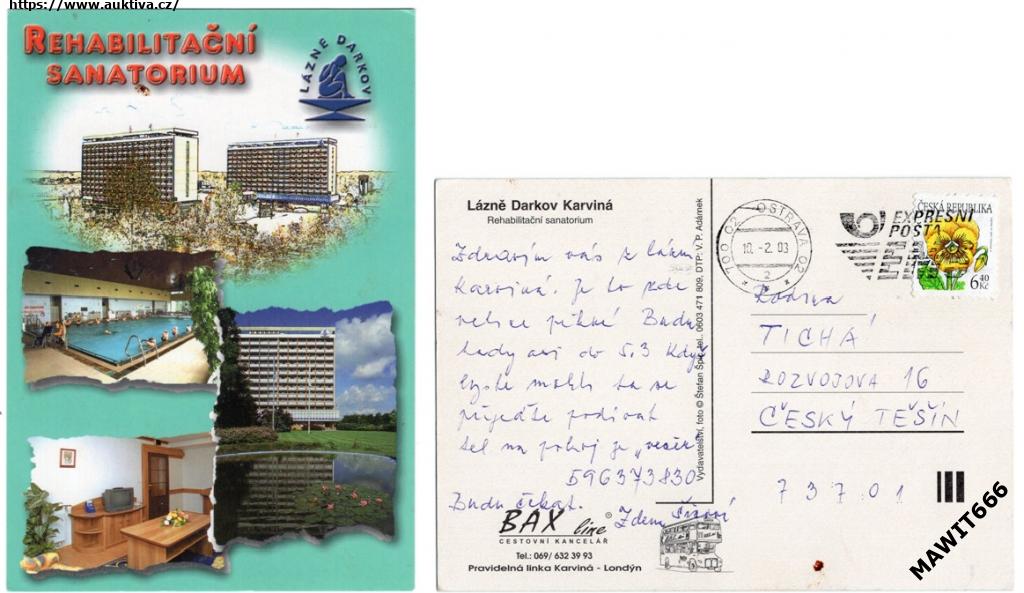 https://www.auktiva.cz/
REHABILITAČNÍ
SANATORIUM
LÁZNE DARKOV
Lázně Darkov Karviná
Rehabilitační sanatorium
Zdravím vás z lázní
Karviná. Je to zde
velice pěkné Budu
tady asi do 5.3 Když
byste mohli tak se
přijeďte podívat
tel na pokoj je "večer"
596373830
Budu čekat.
Zden
BAX line
CESTOVNÍ KANCELÁŘ
Tel.: 069/ 632 39 93
Pravidelná linka Karviná - Londýn
Vydavatelství, foto © Štefan Špic, tel.: 0603 471 809, DTP: V. P. Adámek
700 02 OSTRAVA 02
10. -2. 03
2
EXPRESNÍ
POŠTA
EMS
ČESKÁ REPUBLIKA
6,40
Kč
Rodina
TICHÁ
ROZVOJOVA 16
ČESKÝ TĚŠÍN
73701
MAWIT666